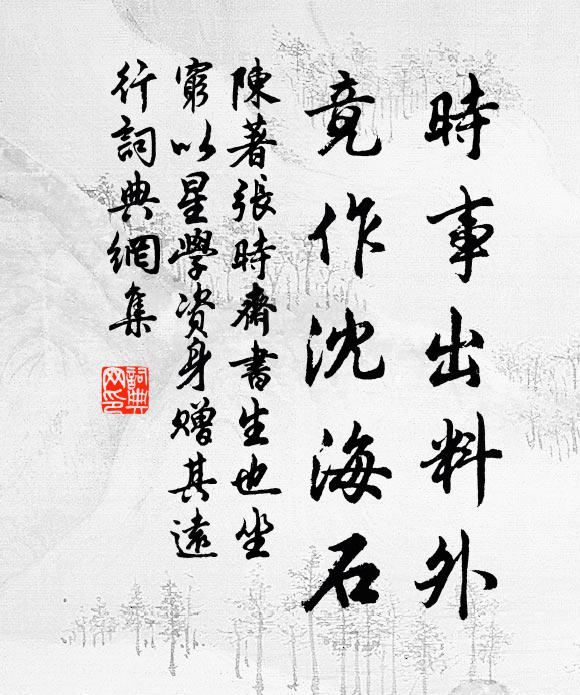 時事出料外
竟作沈海石
陳著張時齋書生也坐
窮以星學資身贈其遠
行詞典網集
詞典
网印